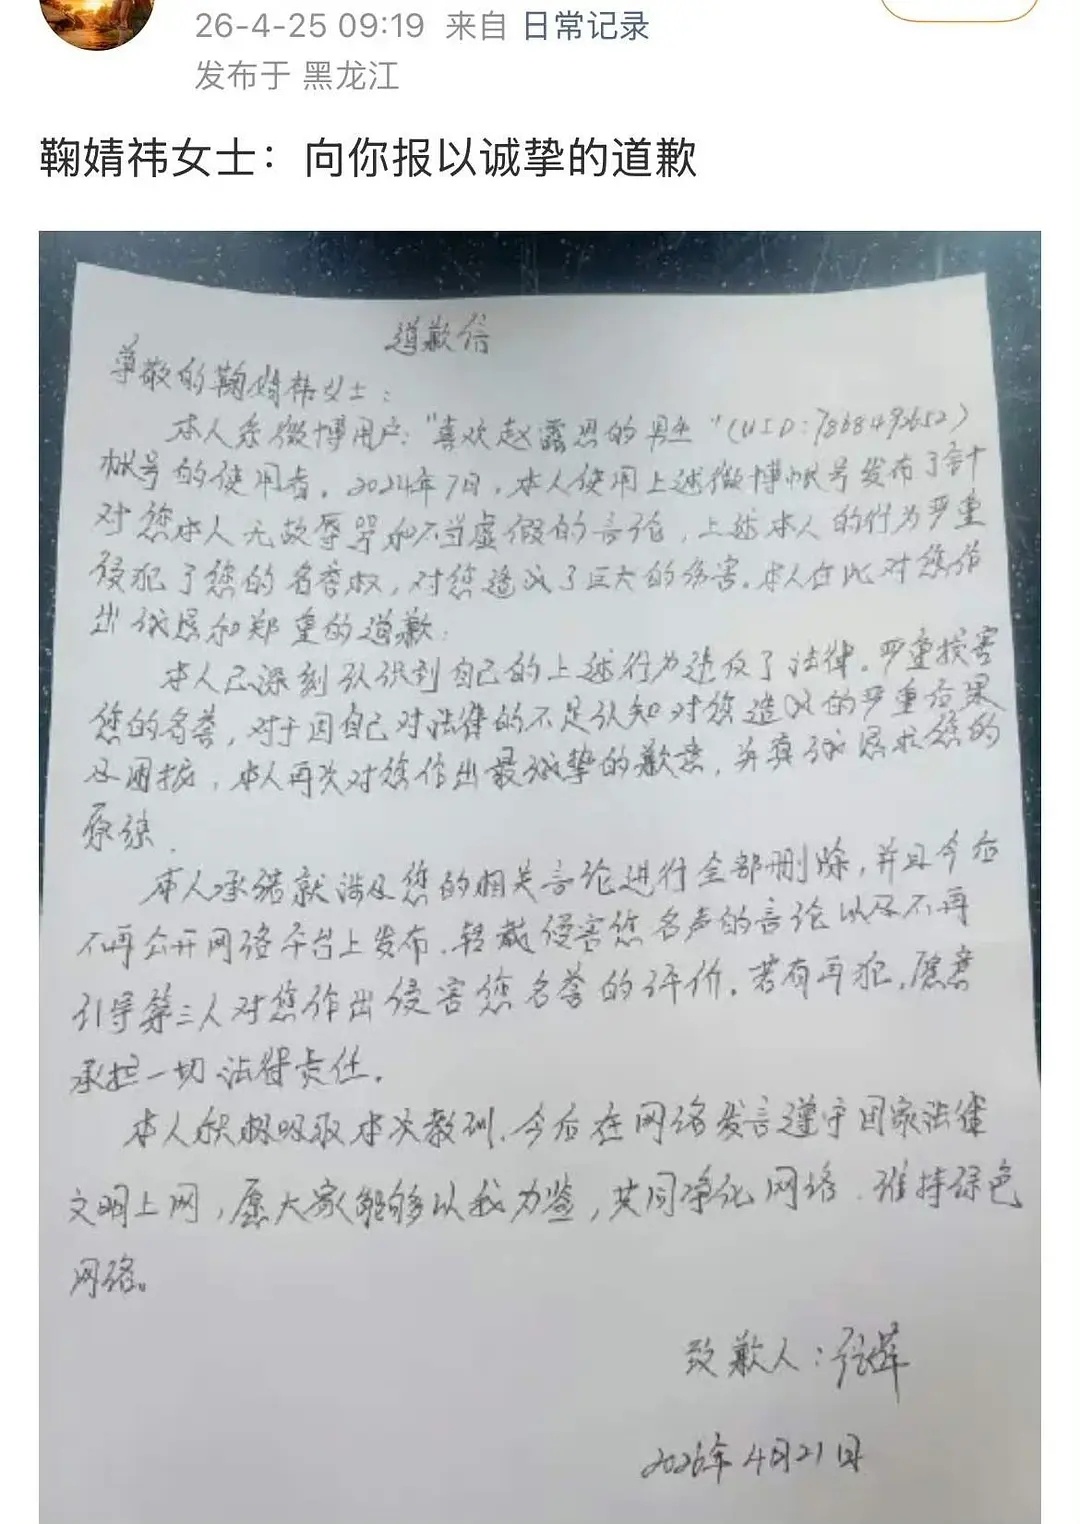 26-4-25 09:19 来自 日常记录
发布于 黑龙江
鞠婧祎女士：向你报以诚挚的道歉
道歉信
尊敬的鞠婧祎女士：
本人系微博用户："喜欢赵露思的男生"(UID:7868493652)
帐号的使用者。2024年7日，本人使用上述微博帐号发布了
对您本人无故辱骂和不当虚假的言论，上述本人的行为严重
侵犯了您的名誉权，对您造成了巨大的伤害。本人在此对您作
出诚恳和郑重的道歉.
本人已深刻认识到自己的上述行为违反了法律。严重损害
您的名誉，对于因自己对法律的不足认知对您造成的严重后果
及困扰，本人再次对您作出最诚挚的歉意，并真诚恳求您的
原谅.
本人承诺就涉及您的相关言论进行全部删除，并且今后
不再公开网络平台上发布、转载侵害您名声的言论以及不再
引导第三人对您作出侵害您名誉的评价。若有再犯，愿意
承担一切法律责任。
本人积极吸取本次教训，今后在网络发言遵守国家法律
文明上网，愿大家能够以我为鉴，共同净化网络、维持绿色
网络。
致歉人：张
2026年4月21日